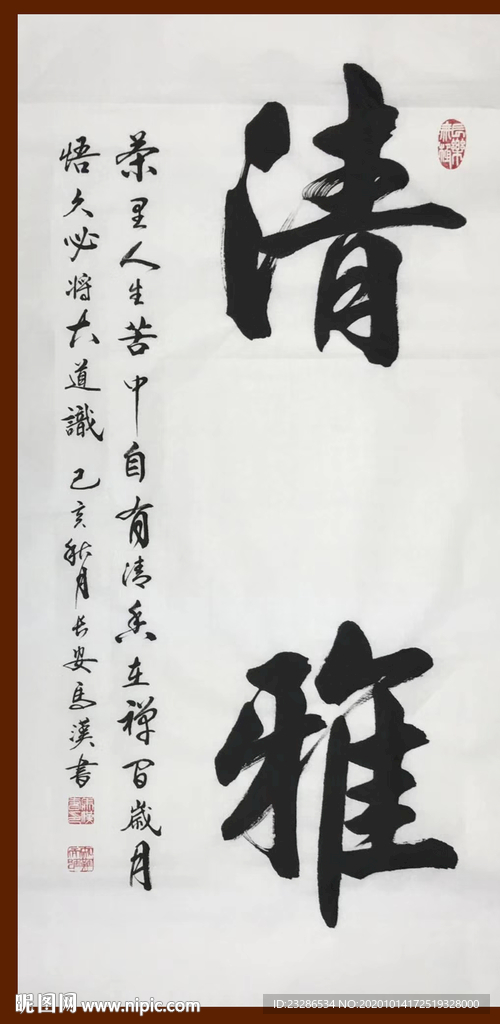 清雅
茶里人生苦中自有清香在禅间歲月
悟久必将大道識 己亥秋月长安馬漢书
昵图网 www.nipic.com
ID:23286534 NO:20201014172519328000